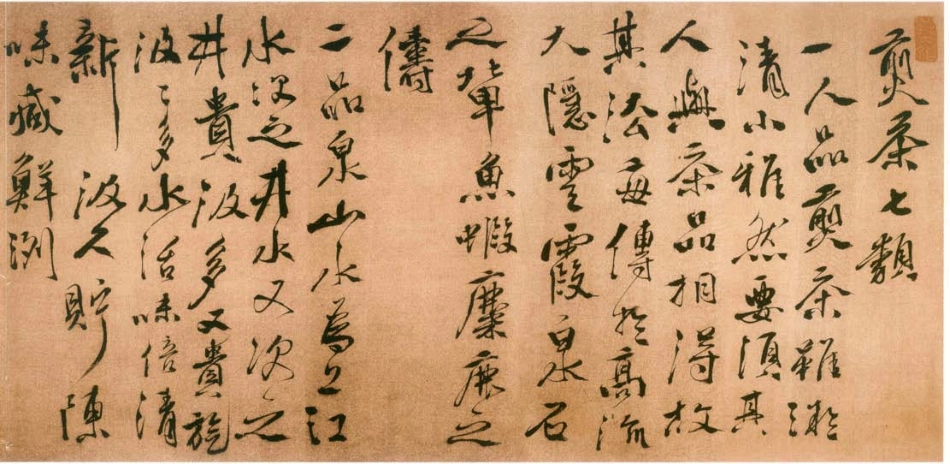 煎茶七類
一人品煎茶雖凝
清小雅然要須其
人與茶品相得故
其法每傳於高流
大隱雲霞泉石
之輩魚蝦麋鹿之
儔
二品泉山水為上江
水次之井水又次之
井貴汲多又貴旋
汲〻多水活味倍清
新汲久貯陳
味減鮮冽